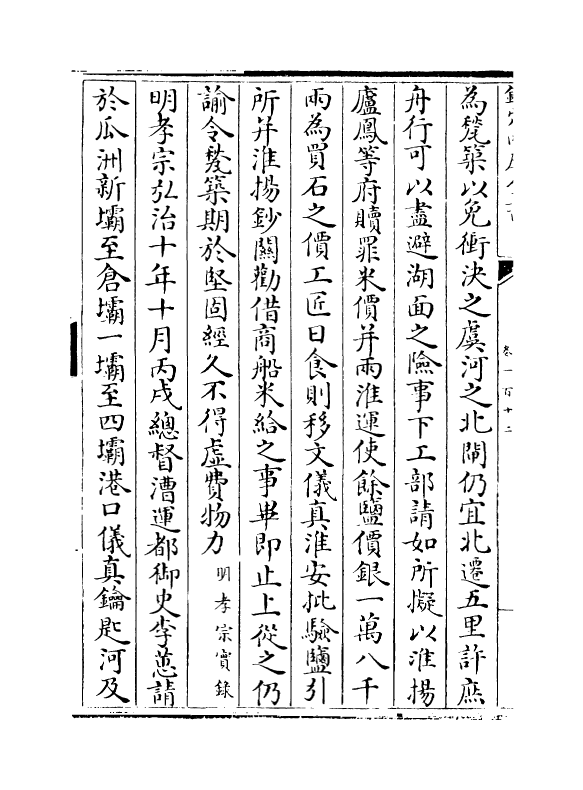 為甃築以免衝決之虞河之北閘仍宜北遷五里許庶
舟行可以盡避湖面之險事下工部請如所擬以淮揚
廬鳳等府贖罪米價并兩淮運使餘鹽價銀一萬八千
兩為買石之價工匠日食則移文儀真淮安批驗鹽引
所并淮揚鈔關勸借商船米給之事畢即止上從之仍
諭令甃築期於堅固經久不得虛費物力 明孝宗實錄
明孝宗弘治十年十月丙戌總督漕運都御史李蕙請
於瓜洲新壩至倉壩一壩至四壩港口儀真鑰匙河及
卷一百十二